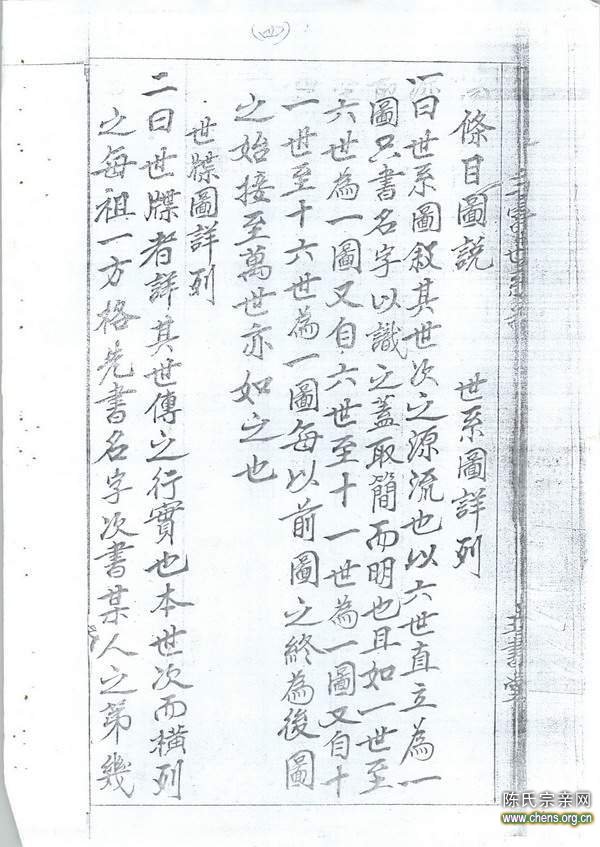 (四)
條目圖説　世系圖詳列
一曰世系圖叙其世次之源流也以六世直立為一
圖只書名字以識之蓋取簡而明也且如一世至
六世為一圖又自六世至十一世為一圖又自十
一世至十六世為一圖每以前圖之終為後圖
之始接至萬世亦如之也
世牒圖詳列
二曰世牒者詳其世傳之行實也本世次而橫列
之每祖一方格先書名字次書某人之第幾
陈氏宗亲网
www.chens.org.cn